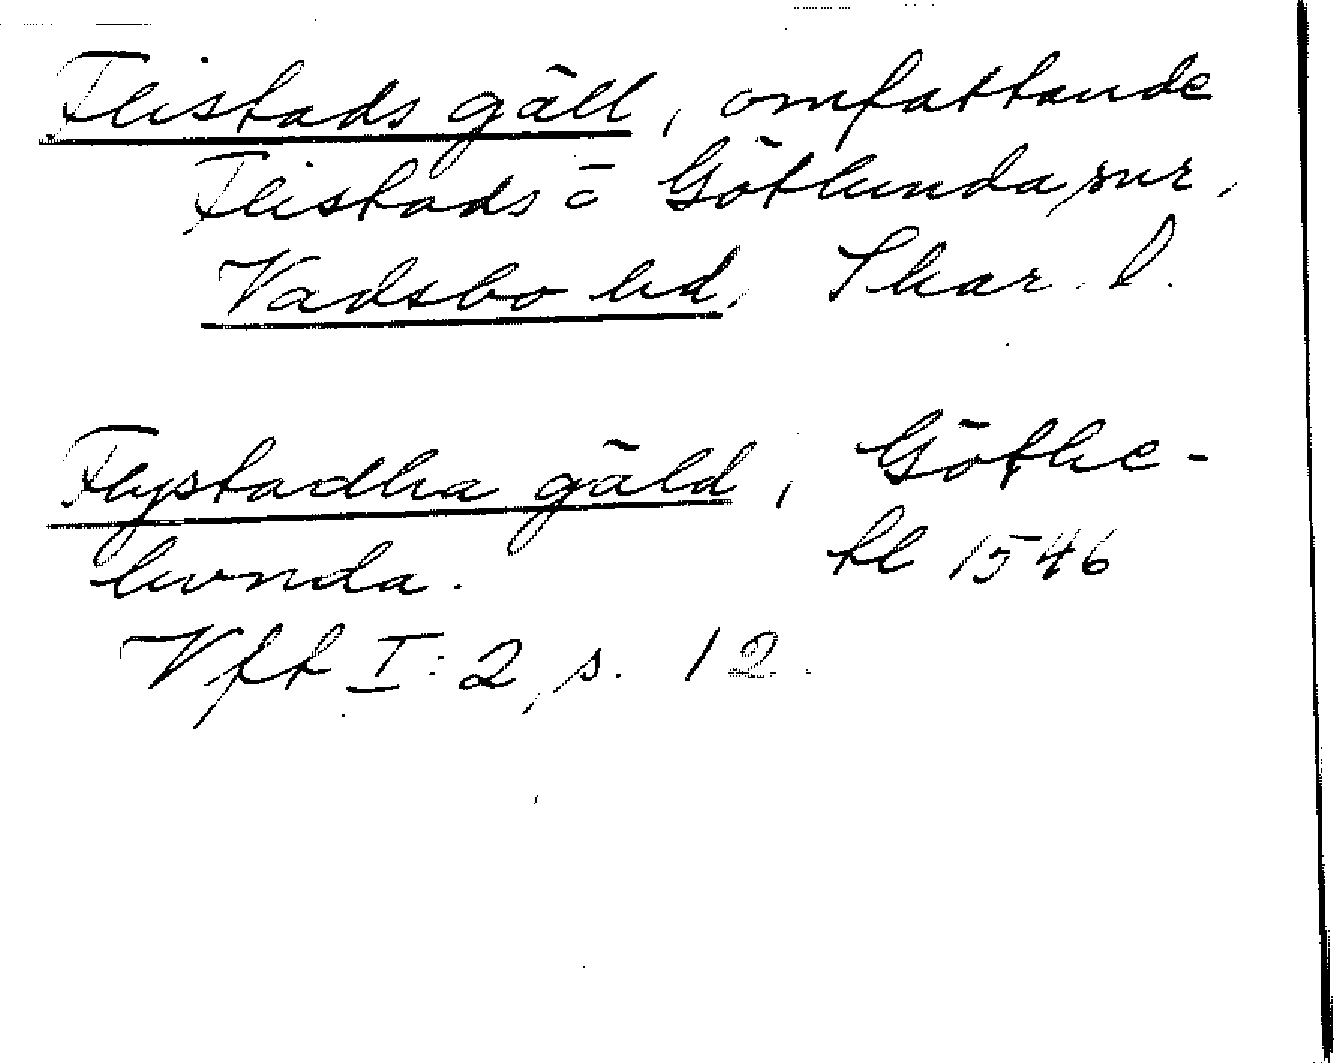 Flistads gäll, omfattande
Flistads o Götlunda snr,
Vadsbo hd, Skar. l.
Flystadha gäld, Göthe-
lwnda. fl 1546
Vfft I:2, s. 12.